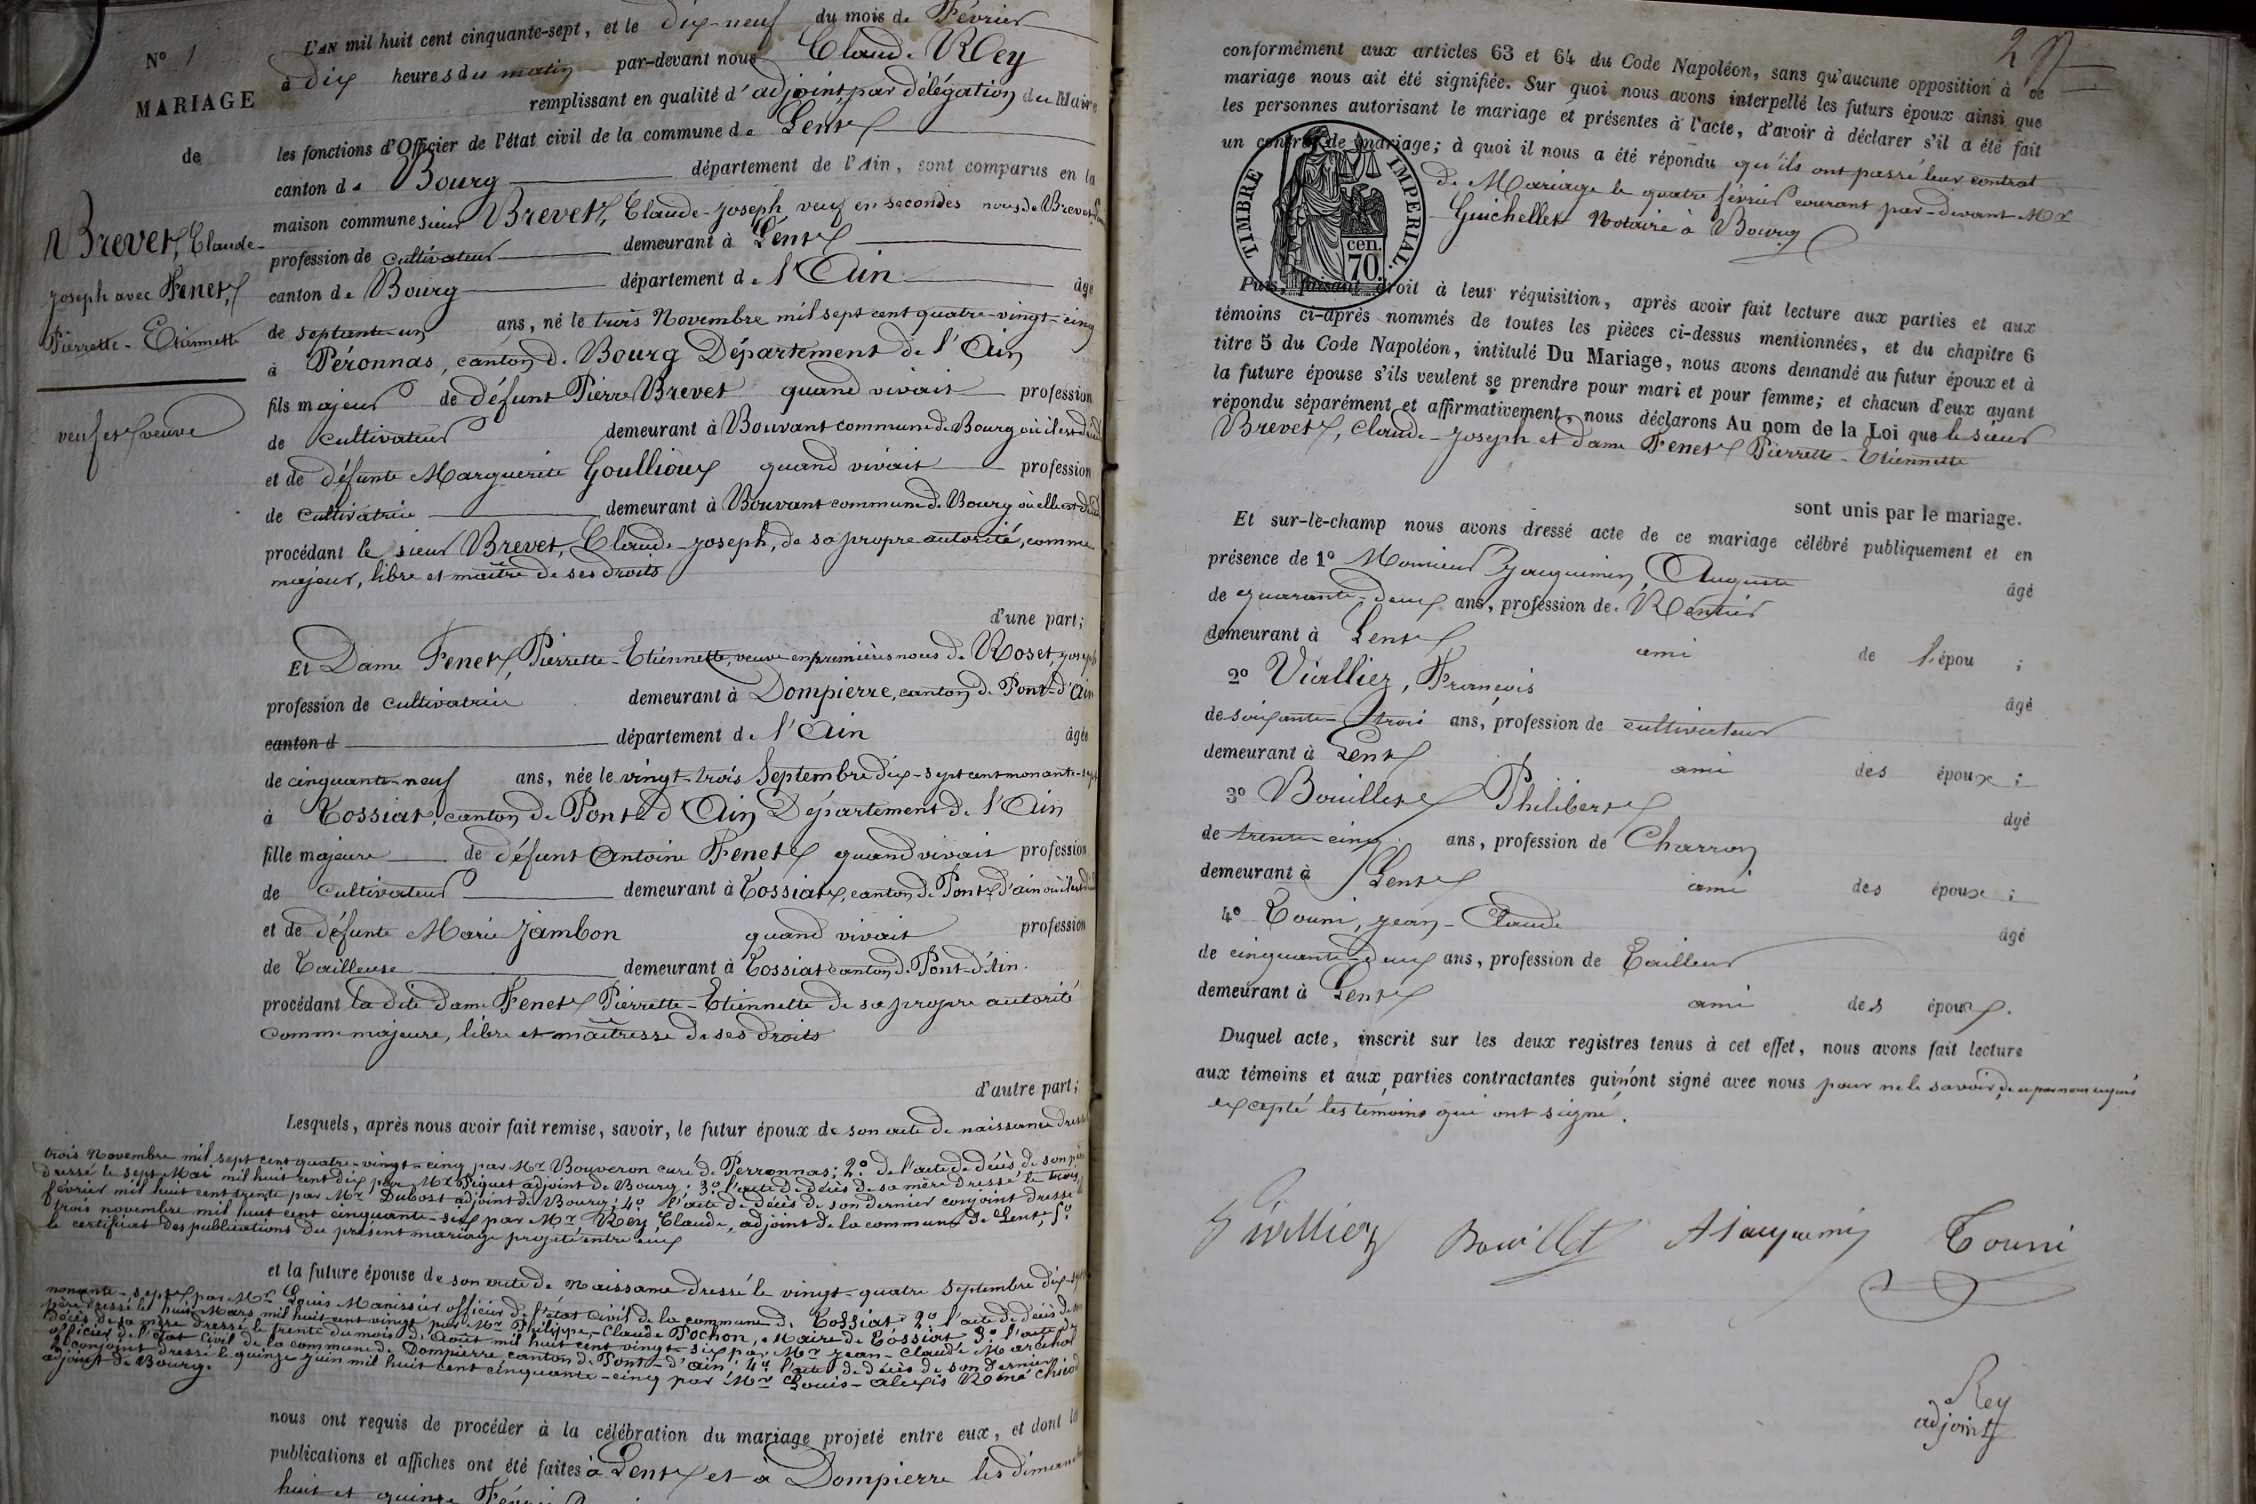 L'AN mil huit cent cinquante-sept, et le dix-neuf du mois de Février
N° 1
à dix heures du matin par-devant nous Claude Rey
MARIAGE
remplissant en qualité d'adjoint, par délégation du Maire
de
les fonctions d'Officier de l'état civil de la commune de Lent
canton de Bourg département de l'Ain, sont comparus en la
maison commune sieur Brevet, Claude-Joseph veuf en secondes noces de Brevet
Brevet, Claude-
Joseph avec Fenet,
Pierrette-Etiennette
veuf et veuve
profession de cultivateur demeurant à Lent
canton de Bourg département de l'Ain âgé
de septante-un ans, né le trois Novembre mil sept cent quatre-vingt-cinq
à Péronnas, canton de Bourg Département de l'Ain
fils majeur de défunt Pierre Brevet quand vivait profession
de cultivateur demeurant à Bouvant commune de Bourg où il est
et de défunte Marguerite Goullioux quand vivait profession
de cultivatrice demeurant à Bouvant commune de Bourg où elle est
procédant le sieur Brevet, Claude-Joseph, de sa propre autorité, comme
majeur, libre et maître de ses droits
d'une part;
Et Dame Fenet, Pierrette-Etiennette, veuve en premières noces de Roset, Joseph
profession de cultivatrice demeurant à Dompierre, canton de Pont-d'Ain
canton d département de l'Ain âgée
de cinquante-neuf ans, née le vingt-trois Septembre dix-sept cent nonante-sept
à Tossiat, canton de Pont-d'Ain Département de l'Ain
fille majeure de défunt Antoine Fenet quand vivait profession
de cultivateur demeurant à Tossiat, canton de Pont-d'ain où il est
et de défunte Marie Jambon quand vivait profession
de Tailleuse demeurant à Tossiat canton de Pont-d'Ain.
procédant la dite dame Fenet Pierrette-Etiennette de sa propre autorité
comme majeure, libre et maîtresse de ses droits
d'autre part;
Lesquels, après nous avoir fait remise, savoir, le futur époux de son acte de naissance dressé
trois Novembre mil sept cent quatre-vingt-cinq par Mr Bouveron curé de Perronnas; 2° de l'acte de décès de son père
dressé le sept Mai mil huit cent dix par Mr Piquet adjoint de Bourg; 3° l'acte de décès de sa mère dressé le trois
février mil huit cent trente par Mr Dubost adjoint de Bourg; 4° l'acte de décès de son dernier conjoint dressé
trois novembre mil huit cent cinquante-six par Mr Rey Claude, adjoint de la commune de Lent, 5°
le certificat des publications du présent mariage projeté entre eux
et la future épouse de son acte de naissance dressé le vingt-quatre Septembre dix-sept
nonante-sept, par Mr Louis Manissier officier de l'état civil de la commune de Tossiat 2° l'acte de décès de son
père dressé le huit Mars mil huit cent vingt par Mr Philippe-Claude Pochon, Maire de Tossiat 3° l'acte de
décès de sa mère dressé le trente du mois d'Août mil huit cent vingt-six par Mr Jean-Claude Maréchal
officier de l'état civil de la commune de Dompierre canton de Pont-d'ain; 4° l'acte de décès de son dernier
conjoint dressé le quinze juin mil huit cent cinquante-cinq par Mr Louis-Alexis Réné
adjoint de Bourg.
nous ont requis de procéder à la célébration du mariage projeté entre eux, et dont les
publications et affiches ont été faites à Lent et à Dompierre les dimanches
huit et quinze
2
conformément aux articles 63 et 64 du Code Napoléon, sans qu'aucune opposition à ce
mariage nous ait été signifiée. Sur quoi nous avons interpellé les futurs époux ainsi que
les personnes autorisant le mariage et présentes à l'acte, d'avoir à déclarer s'il a été fait
un contrat de mariage; à quoi il nous a été répondu qu'ils ont passé leur contrat
de Mariage le quatre février courant par-devant Mr
Guichellet Notaire à Bourg
TIMBRE IMPERIAL.
cen.
70.
Puis, faisant droit à leur réquisition, après avoir fait lecture aux parties et aux
témoins ci-après nommés de toutes les pièces ci-dessus mentionnées, et du chapitre 6
titre 5 du Code Napoléon, intitulé Du Mariage, nous avons demandé au futur époux et à
la future épouse s'ils veulent se prendre pour mari et pour femme; et chacun d'eux ayant
répondu séparément et affirmativement, nous déclarons Au nom de la Loi que le sieur
Brevet, Claude-Joseph et dame Fenet Pierrette-Etiennette
sont unis par le mariage.
Et sur-le-champ nous avons dressé acte de ce mariage célébré publiquement et en
présence de 1° Monsieur Jacquemin, Auguste âgé
de quarante-deux ans, profession de Rentier
demeurant à Lent ami de l'épou ;
2° Viallier, François âgé
de soixante-trois ans, profession de cultivateur
demeurant à Lent ami des époux;
3° Bouillet Philibert âgé
de trente-cinq ans, profession de Charron
demeurant à Lent ami des époux;
4° Touni, Jean-Claude âgé
de cinquante-deux ans, profession de Tailleur
demeurant à Lent ami des époux.
Duquel acte, inscrit sur les deux registres tenus à cet effet, nous avons fait lecture
aux témoins et aux parties contractantes qui n'ont signé avec nous pour ne le savoir, de ce par nous enquis
excepté les témoins qui ont signé.
Viallier Bouillet A Jacquemin Touni
Rey
adjoint